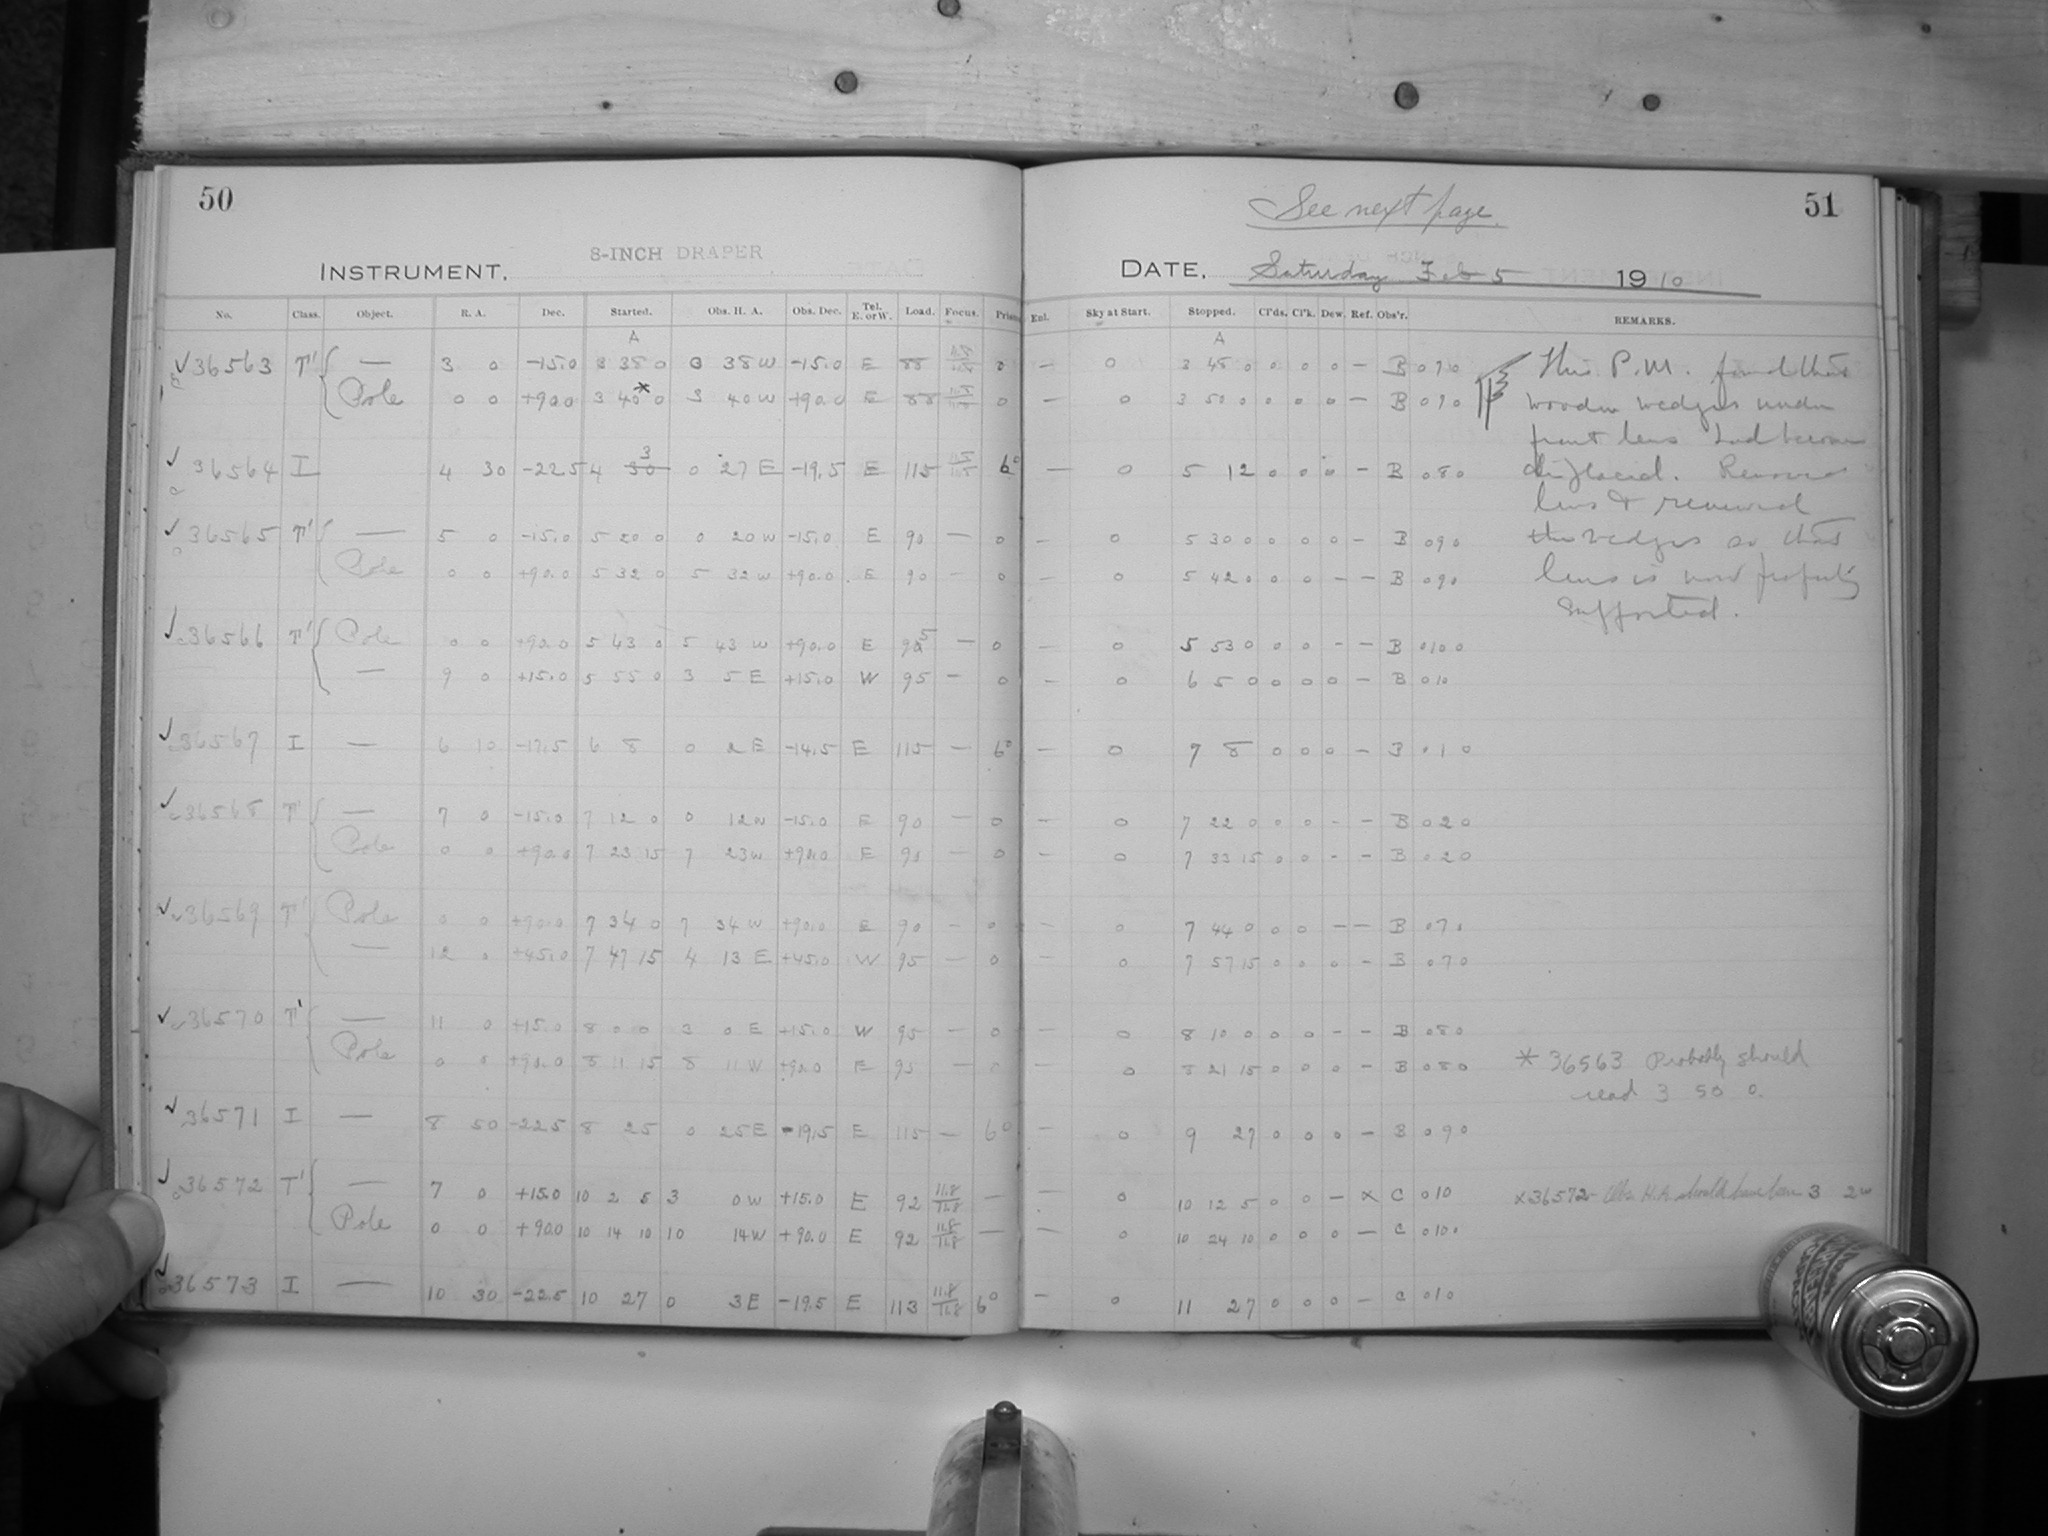 50
8-INCH DRAPER
INSTRUMENT.
No. Class. Object. R. A. Dec. Started. Obs. H. A. Obs. Dec. Tel. E. or W. Load. Focus. Prism
A
36563 T' — 3 0 -15.0 3 38 0 3 38 W -15.0 E 88 0
Pole 0 0 +90.0 3 40* 0 3 40 W +90.0 E 88 0
36564 I 4 30 -22.5 4 3 30 0 27 E -19.5 E 115 6°
36565 T' — 5 0 -15.0 5 20 0 0 20 W -15.0 E 90 — 0
Pole 0 0 +90.0 5 32 0 5 32 W +90.0 E 90 — 0
36566 T' Pole 0 0 +90.0 5 43 0 5 43 W +90.0 E 95 — 0
— 9 0 +15.0 5 55 0 3 5 E +15.0 W 95 — 0
36567 I — 6 10 -17.5 6 8 0 2 E -14.5 E 115 — 6°
36568 T' — 7 0 -15.0 7 12 0 0 12 W -15.0 E 90 — 0
Pole 0 0 +90.0 7 23 15 7 23 W +90.0 E 90 — 0
36569 T' Pole 0 0 +90.0 7 34 0 7 34 W +90.0 E 90 — 0
— 12 0 +45.0 7 47 15 4 13 E +45.0 W 95 — 0
36570 T' — 11 0 +15.0 8 0 0 3 0 E +15.0 W 95 — 0
Pole 0 0 +90.0 8 11 15 8 11 W +90.0 E 95 — 0
36571 I — 8 50 -22.5 8 25 0 25 E -19.5 E 115 — 6°
36572 T' — 7 0 +15.0 10 2 5 3 0 W +15.0 E 92 11.8/11.8 —
Pole 0 0 +90.0 10 14 10 10 14 W +90.0 E 92 11.8/11.8 —
36573 I — 10 30 -22.5 10 27 0 3 E -19.5 E 113 11.8/11.8 6°
See next page.
51
DATE, Saturday Feb 5 1910
Enl. Sky at Start. Stopped. Cl'ds. Cl'k. Dew. Ref. Obs'r. REMARKS.
A
— 0 3 48 0 0 0 0 — B 070 This P.M. found that
— 0 3 50 0 0 0 0 — B 070 wooden wedges under
front lens had become
— 0 5 12 0 0 0 — B 080 displaced. Removed
lens & renewed
— 0 5 30 0 0 0 0 — B 090 the wedges so that
— 0 5 42 0 0 0 — — B 090 lens is now properly
supported.
— 0 5 53 0 0 0 — — B 0100
— 0 6 5 0 0 0 0 — B 010
— 0 7 8 0 0 0 — B 010
— 0 7 22 0 0 0 — — B 020
— 0 7 33 15 0 0 — — B 020
— 0 7 44 0 0 0 — — B 070
— 0 7 57 15 0 0 0 — B 070
— 0 8 10 0 0 0 — — B 080
— 0 8 21 15 0 0 0 — B 080
* 36563 Probably should
read 3 50 0.
— 0 9 27 0 0 0 — B 090
0 10 12 5 0 0 — x C 010 x 36572 - Obs. H.A. should have been 3 2 W
— 0 10 24 10 0 0 0 — C 010
— 0 11 27 0 0 0 — C 010